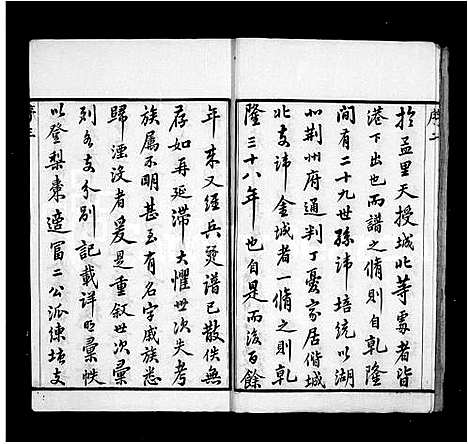 序二
於孟里天授城北等處者皆
港下出也而譜之脩則自乾隆
間有二十九世孫諱培統以湖
北荊州府通判丁憂家居偕城
北支諱金城者一脩之則乾
隆三十八年也自是而後百餘
年來又經兵燹譜已散佚無
存如再延滯大懼世次失考
族属不明甚至有名字戚族悉
歸湮沒者爰是重叙世次彙
列各支分別記載詳明彙帙
以登梨棗壹富二公派練塘支
序三